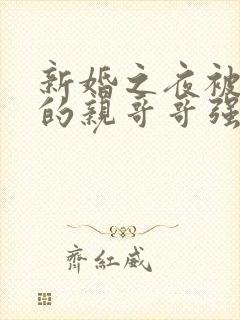 新婚之夜被
的親哥哥强
齊紅威